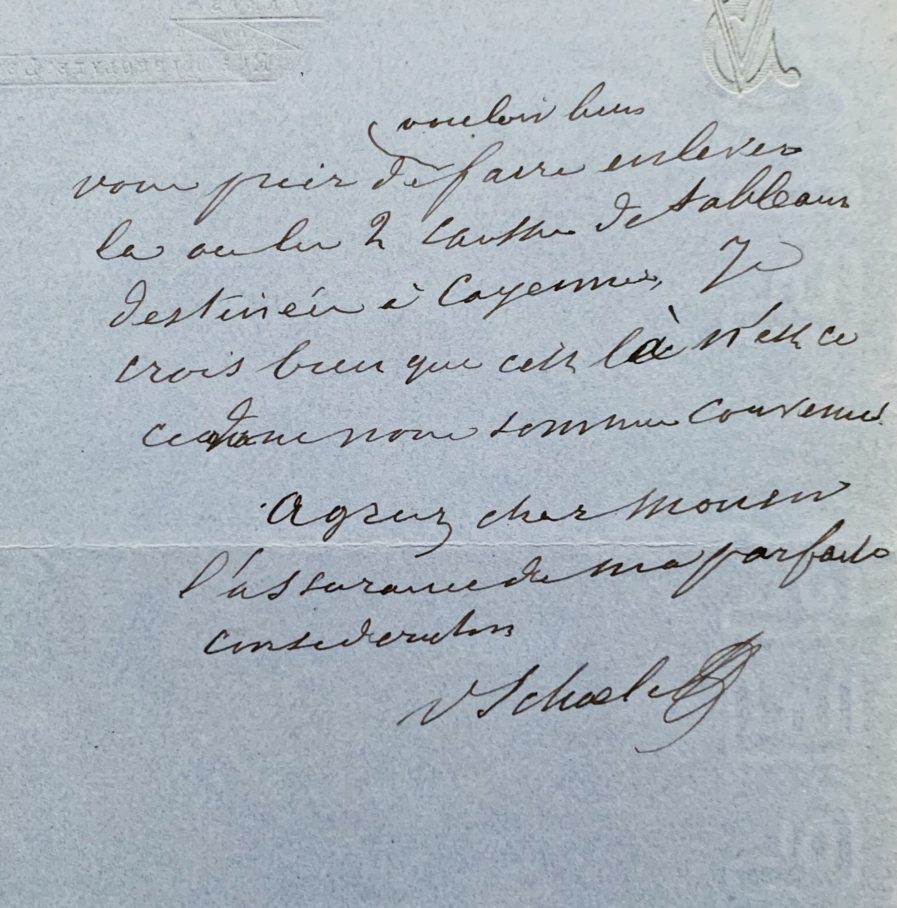 vouloir bien
vous prier de faire enlever
la ou les 2 caisses de tableaux
destinées à Cayenne, Je
crois bien que c'est là n'est ce
dont nous sommes convenus.
Agréez cher Monsieur
l'assurance de ma parfaite
consideration
V Schoelcher